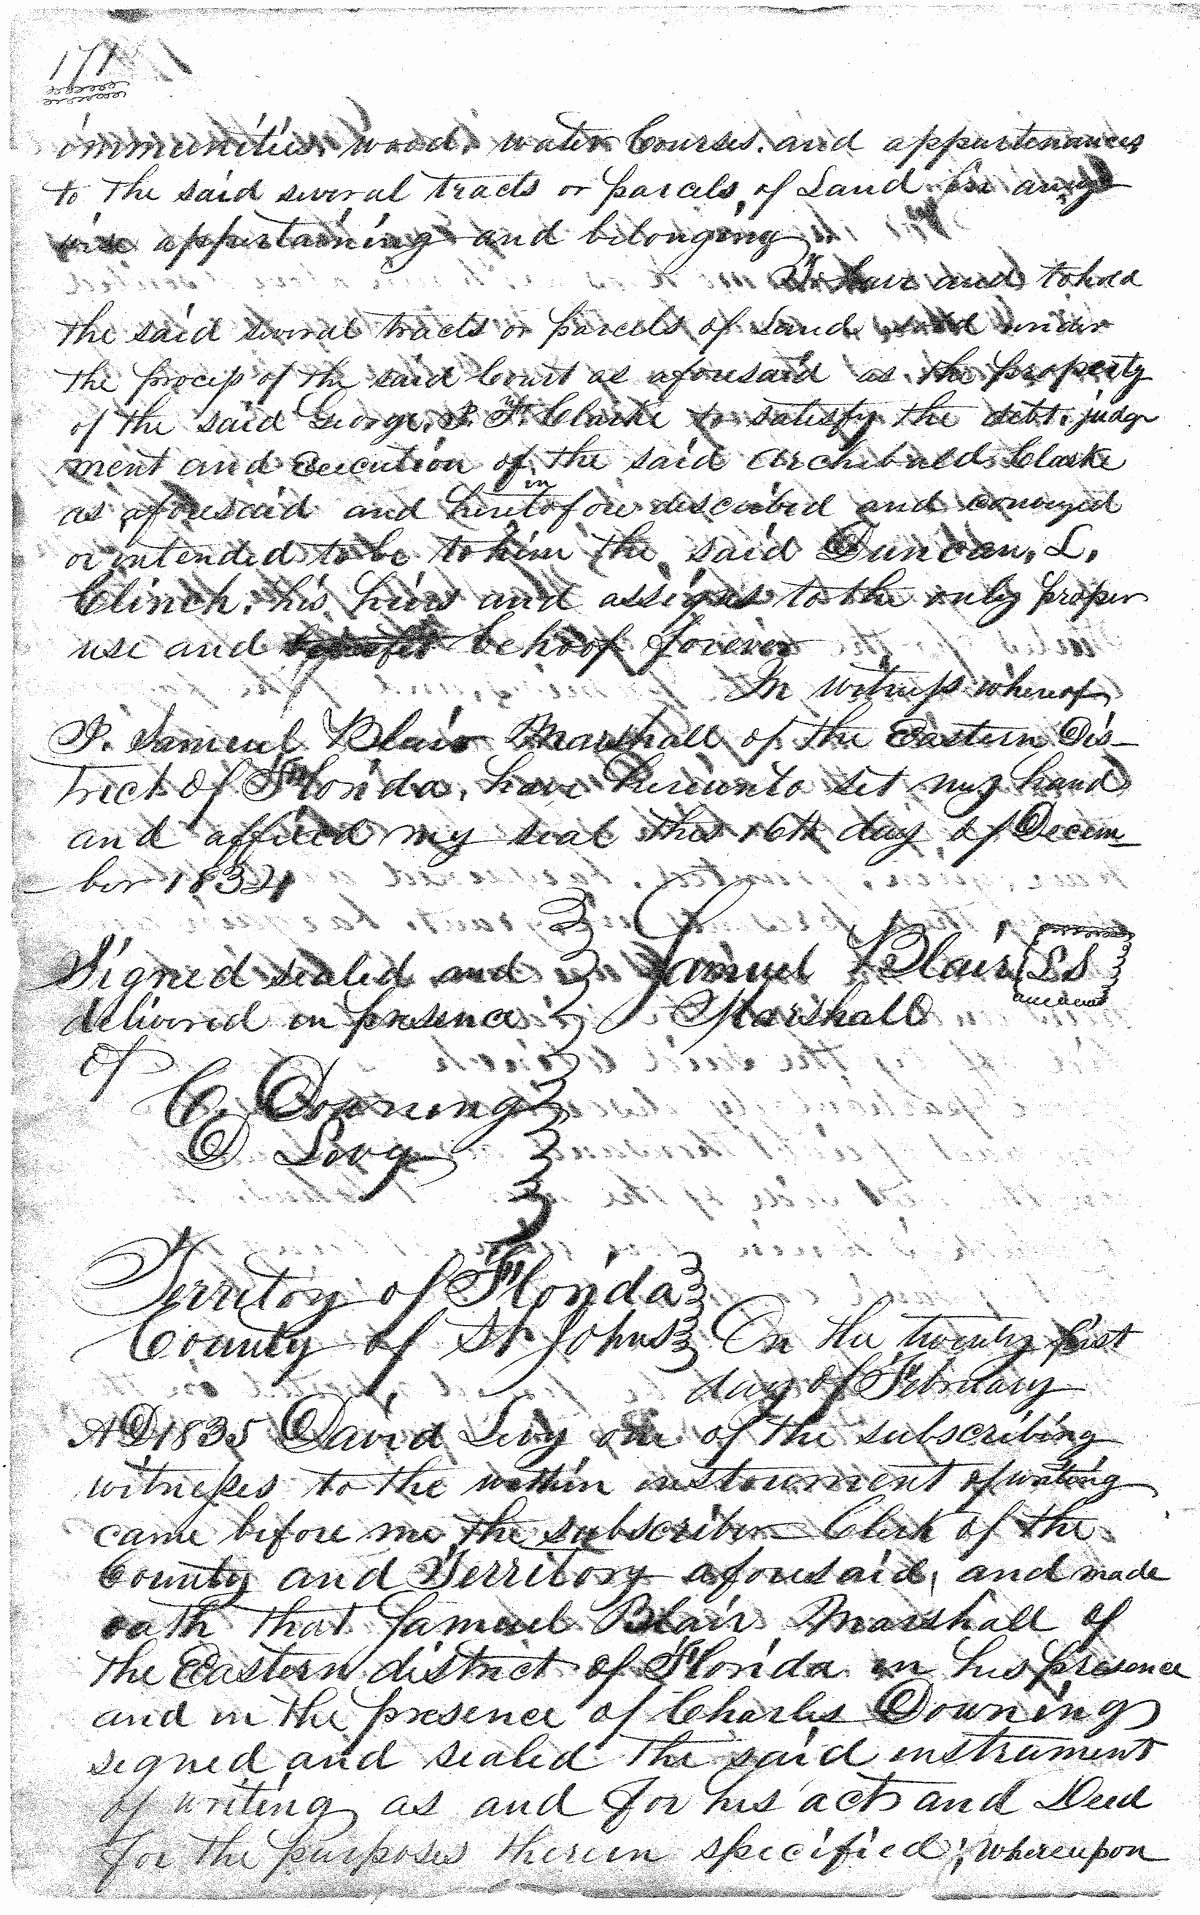 171
immunities, wood, water Courses, and appurtenances
to the said several tracts or parcels of Land in any
wise appertaining and belonging
To have and to hold
the said several tracts or parcels of Land, sold under
the process of the said Court as aforesaid as the property
of the said George, J. F. Clarke to satisfy the debt, judge
ment and execution of the said Archibald Clarke
as aforesaid and hereintofore described and conveyed
or intended to be to him the said Duncan, L.
Clinch, his heirs and assigns to the only proper
use and behoof forever
In witness whereof,
I. Samuel Blair Marshall of the Eastern Dis-
trict of Florida, have hereunto set my hand
and affixed my seal this 16th day of Decem
-ber 1834
Signed sealed and Samuel Blair LS
delivered in presence Marshall
of
C. Downing
D Levy
Territory of Florida
County of St Johns On the twenty first
day of February
AD 1835 David Levy one of the subscribing
witnesses to the within instrument of writing
came before me the subscriber Clerk of the
County and Territory aforesaid, and made
oath that Samuel Blair Marshall of
the Eastern district of Florida in his presence
and in the presence of Charles Downing
signed and sealed the said instrument
of writing as and for his act and Deed
for the purposes therein specified; Whereupon